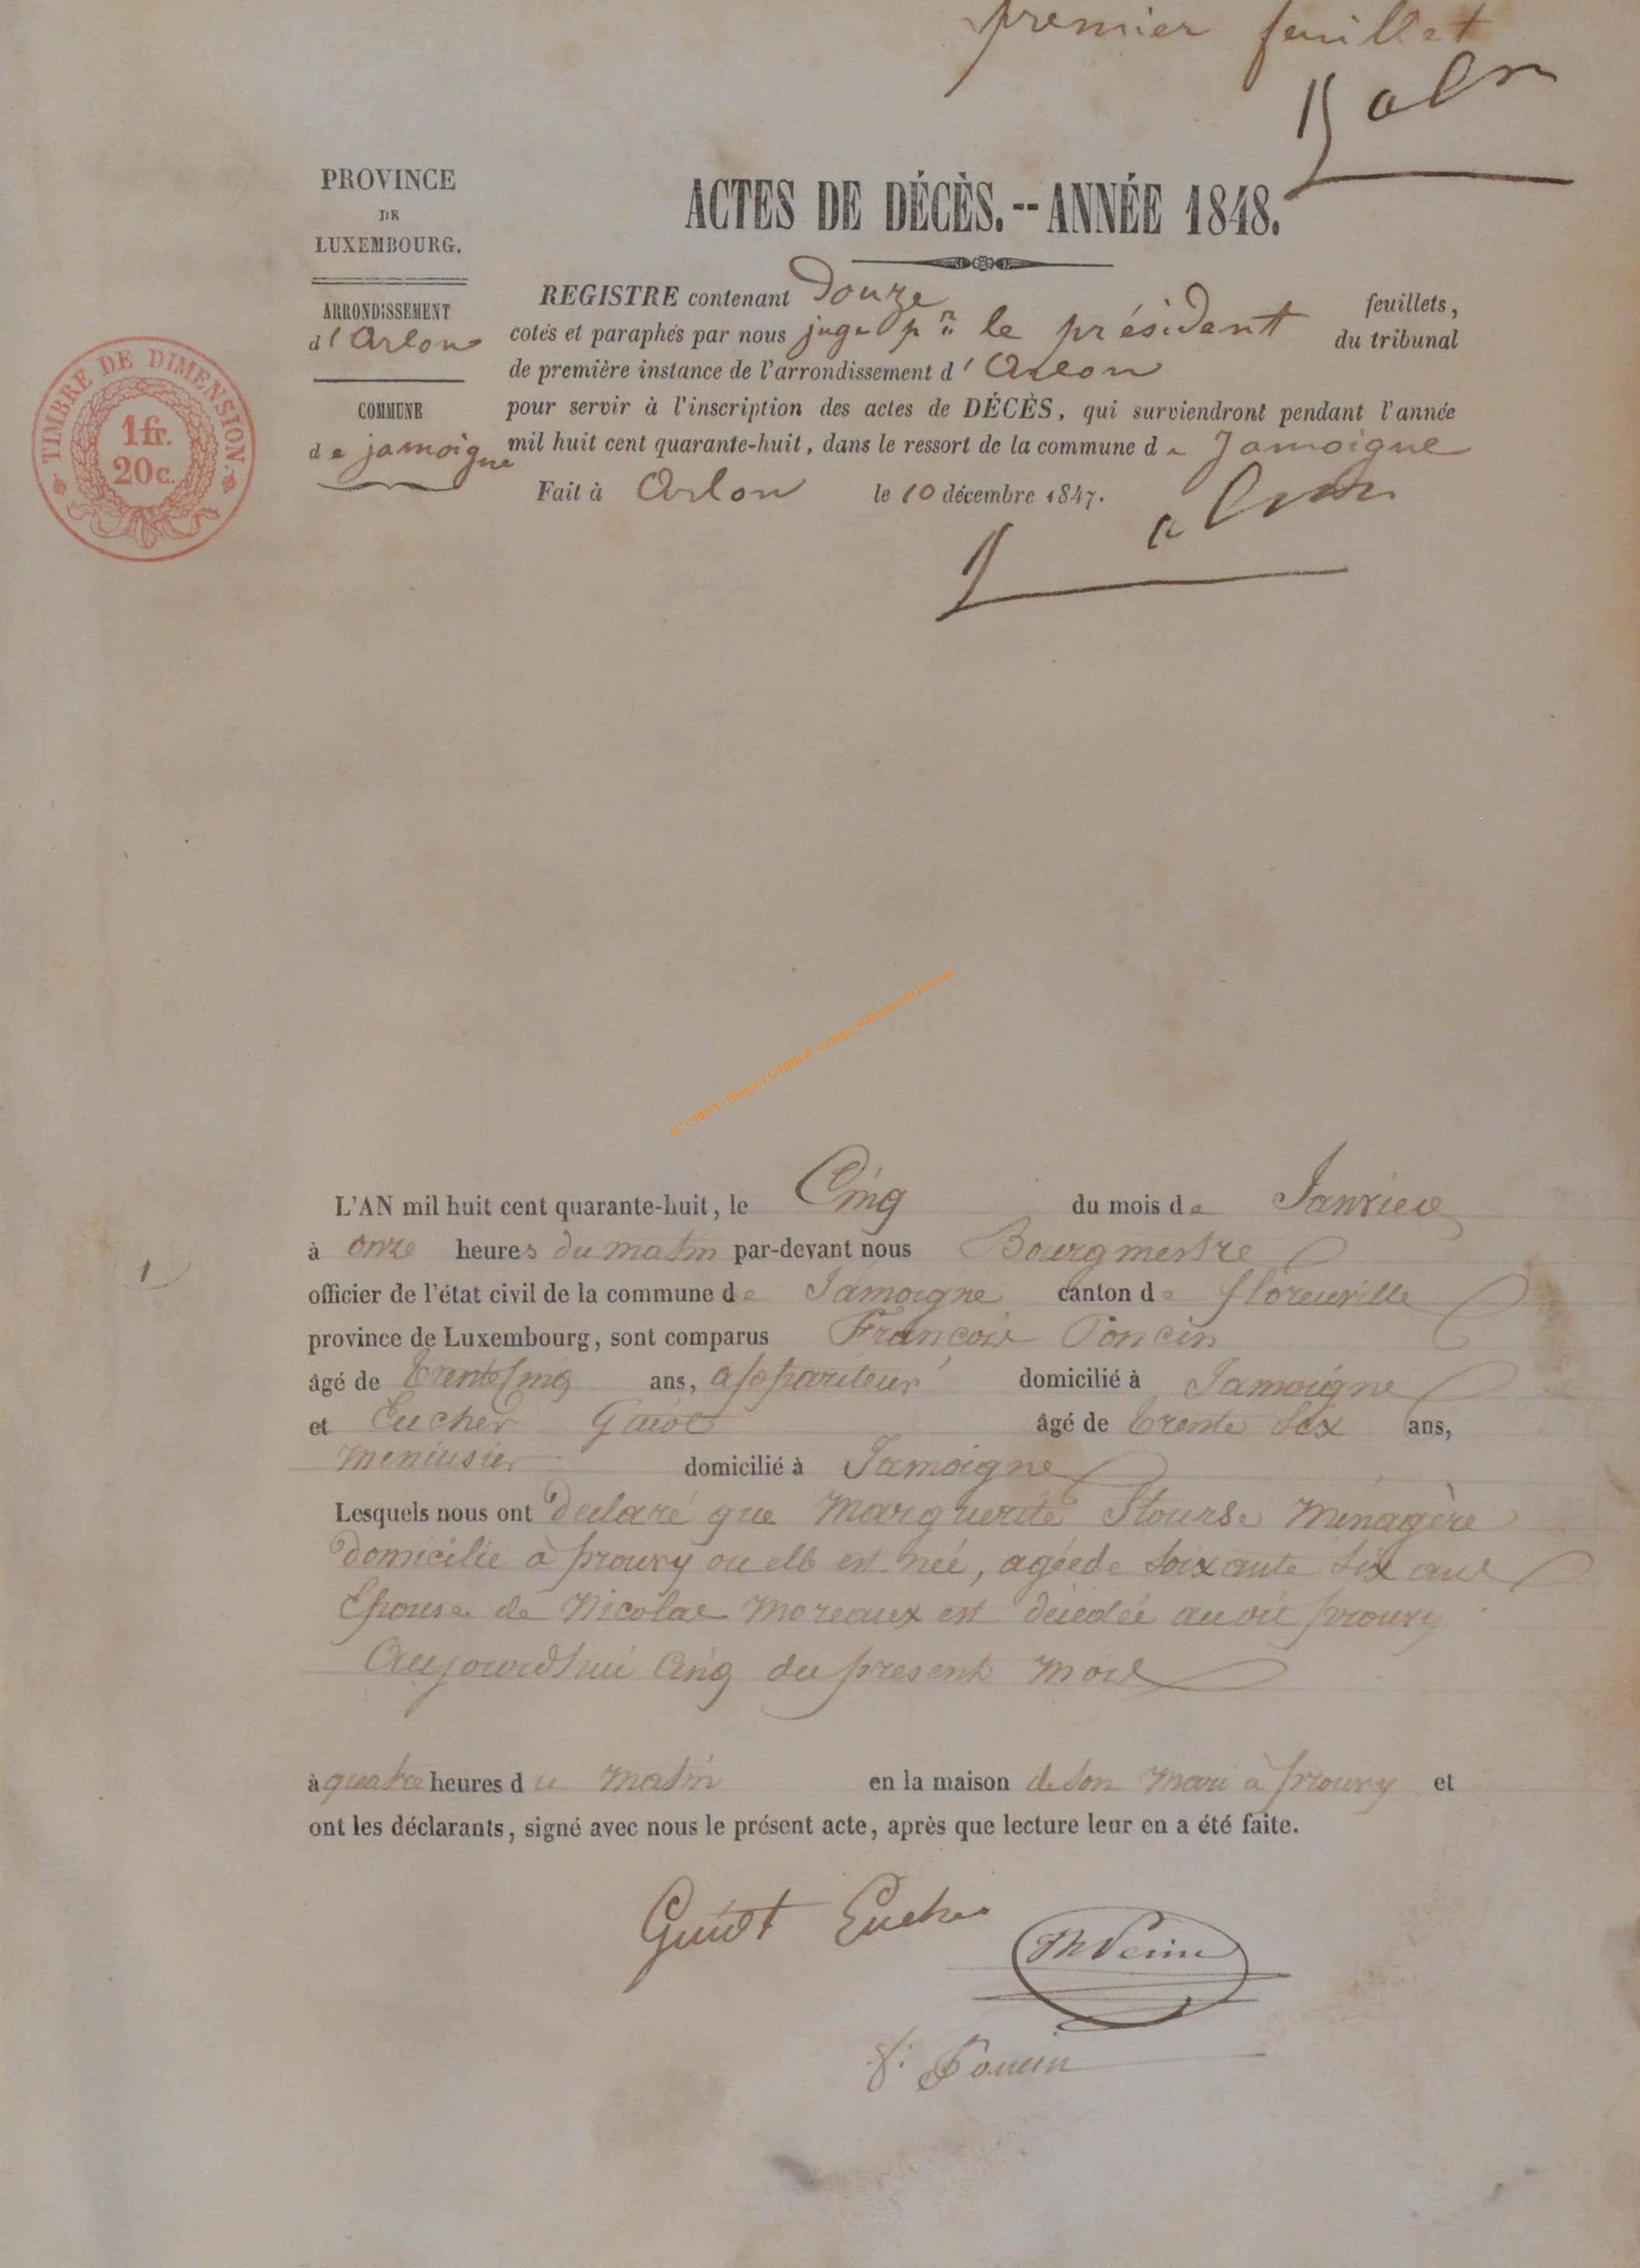 premier feuillet
PROVINCE
DE
LUXEMBOURG.
ARRONDISSEMENT
d'Arlon
COMMUNE
de jamoigne
TIMBRE DE DIMENSION.
1 fr.
20 c.
ACTES DE DÉCÈS.--ANNÉE 1848.
REGISTRE contenant Douze feuillets,
cotés et paraphés par nous juge pr le président du tribunal
de première instance de l'arrondissement d'Arlon
pour servir à l'inscription des actes de DÉCÈS, qui surviendront pendant l'année
mil huit cent quarante-huit, dans le ressort de la commune de Jamoigne
Fait à Arlon le 10 décembre 1847.
L'AN mil huit cent quarante-huit, le Cinq du mois de Janvier
à onze heures du matin par-devant nous Bourgmestre
1
officier de l'état civil de la commune de Jamoigne canton de florenville
province de Luxembourg, sont comparus François Poncin
âgé de trente cinq ans, appariteur domicilié à Jamoigne
et Eucher Guiot âgé de trente six ans,
menuisier domicilié à Jamoigne
Lesquels nous ont declaré que Marguerite Stourse Ménagère
domicilie à prouvy ou elle est née, agée de soixante six ans
Epouse de Nicolas Moreaux est décédée au dit prouvy
aujourd'hui cinq du present mois
à quatre heures du matin en la maison de son mari à prouvy et
ont les déclarants, signé avec nous le présent acte, après que lecture leur en a été faite.
Guiot Eucher
f: Poncin